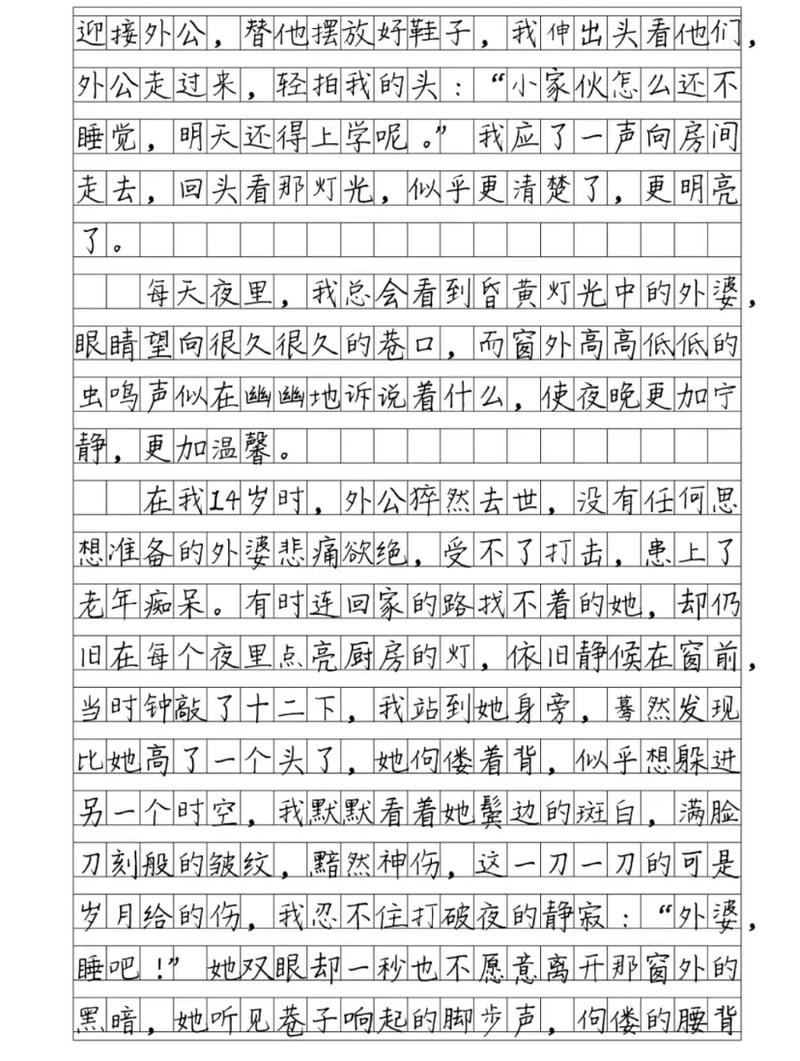 迎接外公，替他摆放好鞋子，我伸出头看他们，
外公走过来，轻拍我的头：“小家伙怎么还不
睡觉，明天还得上学呢。”我应了一声向房间
走去，回头看那灯光，似乎更清楚了，更明亮
了。
每天夜里，我总会看到昏黄灯光中的外婆，
眼睛望向很久很久的巷口，而窗外高高低低的
虫鸣声似在幽幽地诉说着什么，使夜晚更加宁
静，更加温馨。
在我14岁时，外公猝然去世，没有任何思
想准备的外婆悲痛欲绝，受不了打击，患上了
老年痴呆。有时连回家的路找不着的她，却仍
旧在每个夜里点亮厨房的灯，依旧静候在窗前，
当时钟敲了十二下，我站到她身旁，蓦然发现
比她高了一个头了，她佝偻着背，似乎想躲进
另一个时空，我默默看着她鬓边的斑白，满脸
刀刻般的皱纹，黯然神伤，这一刀一刀的可是
岁月给的伤，我忍不住打破夜的静寂：“外婆，
睡吧！”她双眼却一秒也不愿意离开那窗外的
黑暗，她听见巷子响起的脚步声，佝偻的腰背